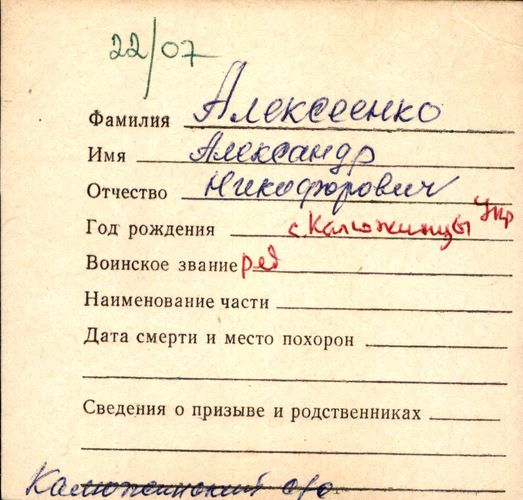 22/07
Фамилия Алексеенко
Имя Александр
Отчество Никофорович
Год рождения с. Калюжинцы Укр
Воинское звание ряд
Наименование части
Дата смерти и место похорон
Сведения о призыве и родственниках
Калюжинский с/о